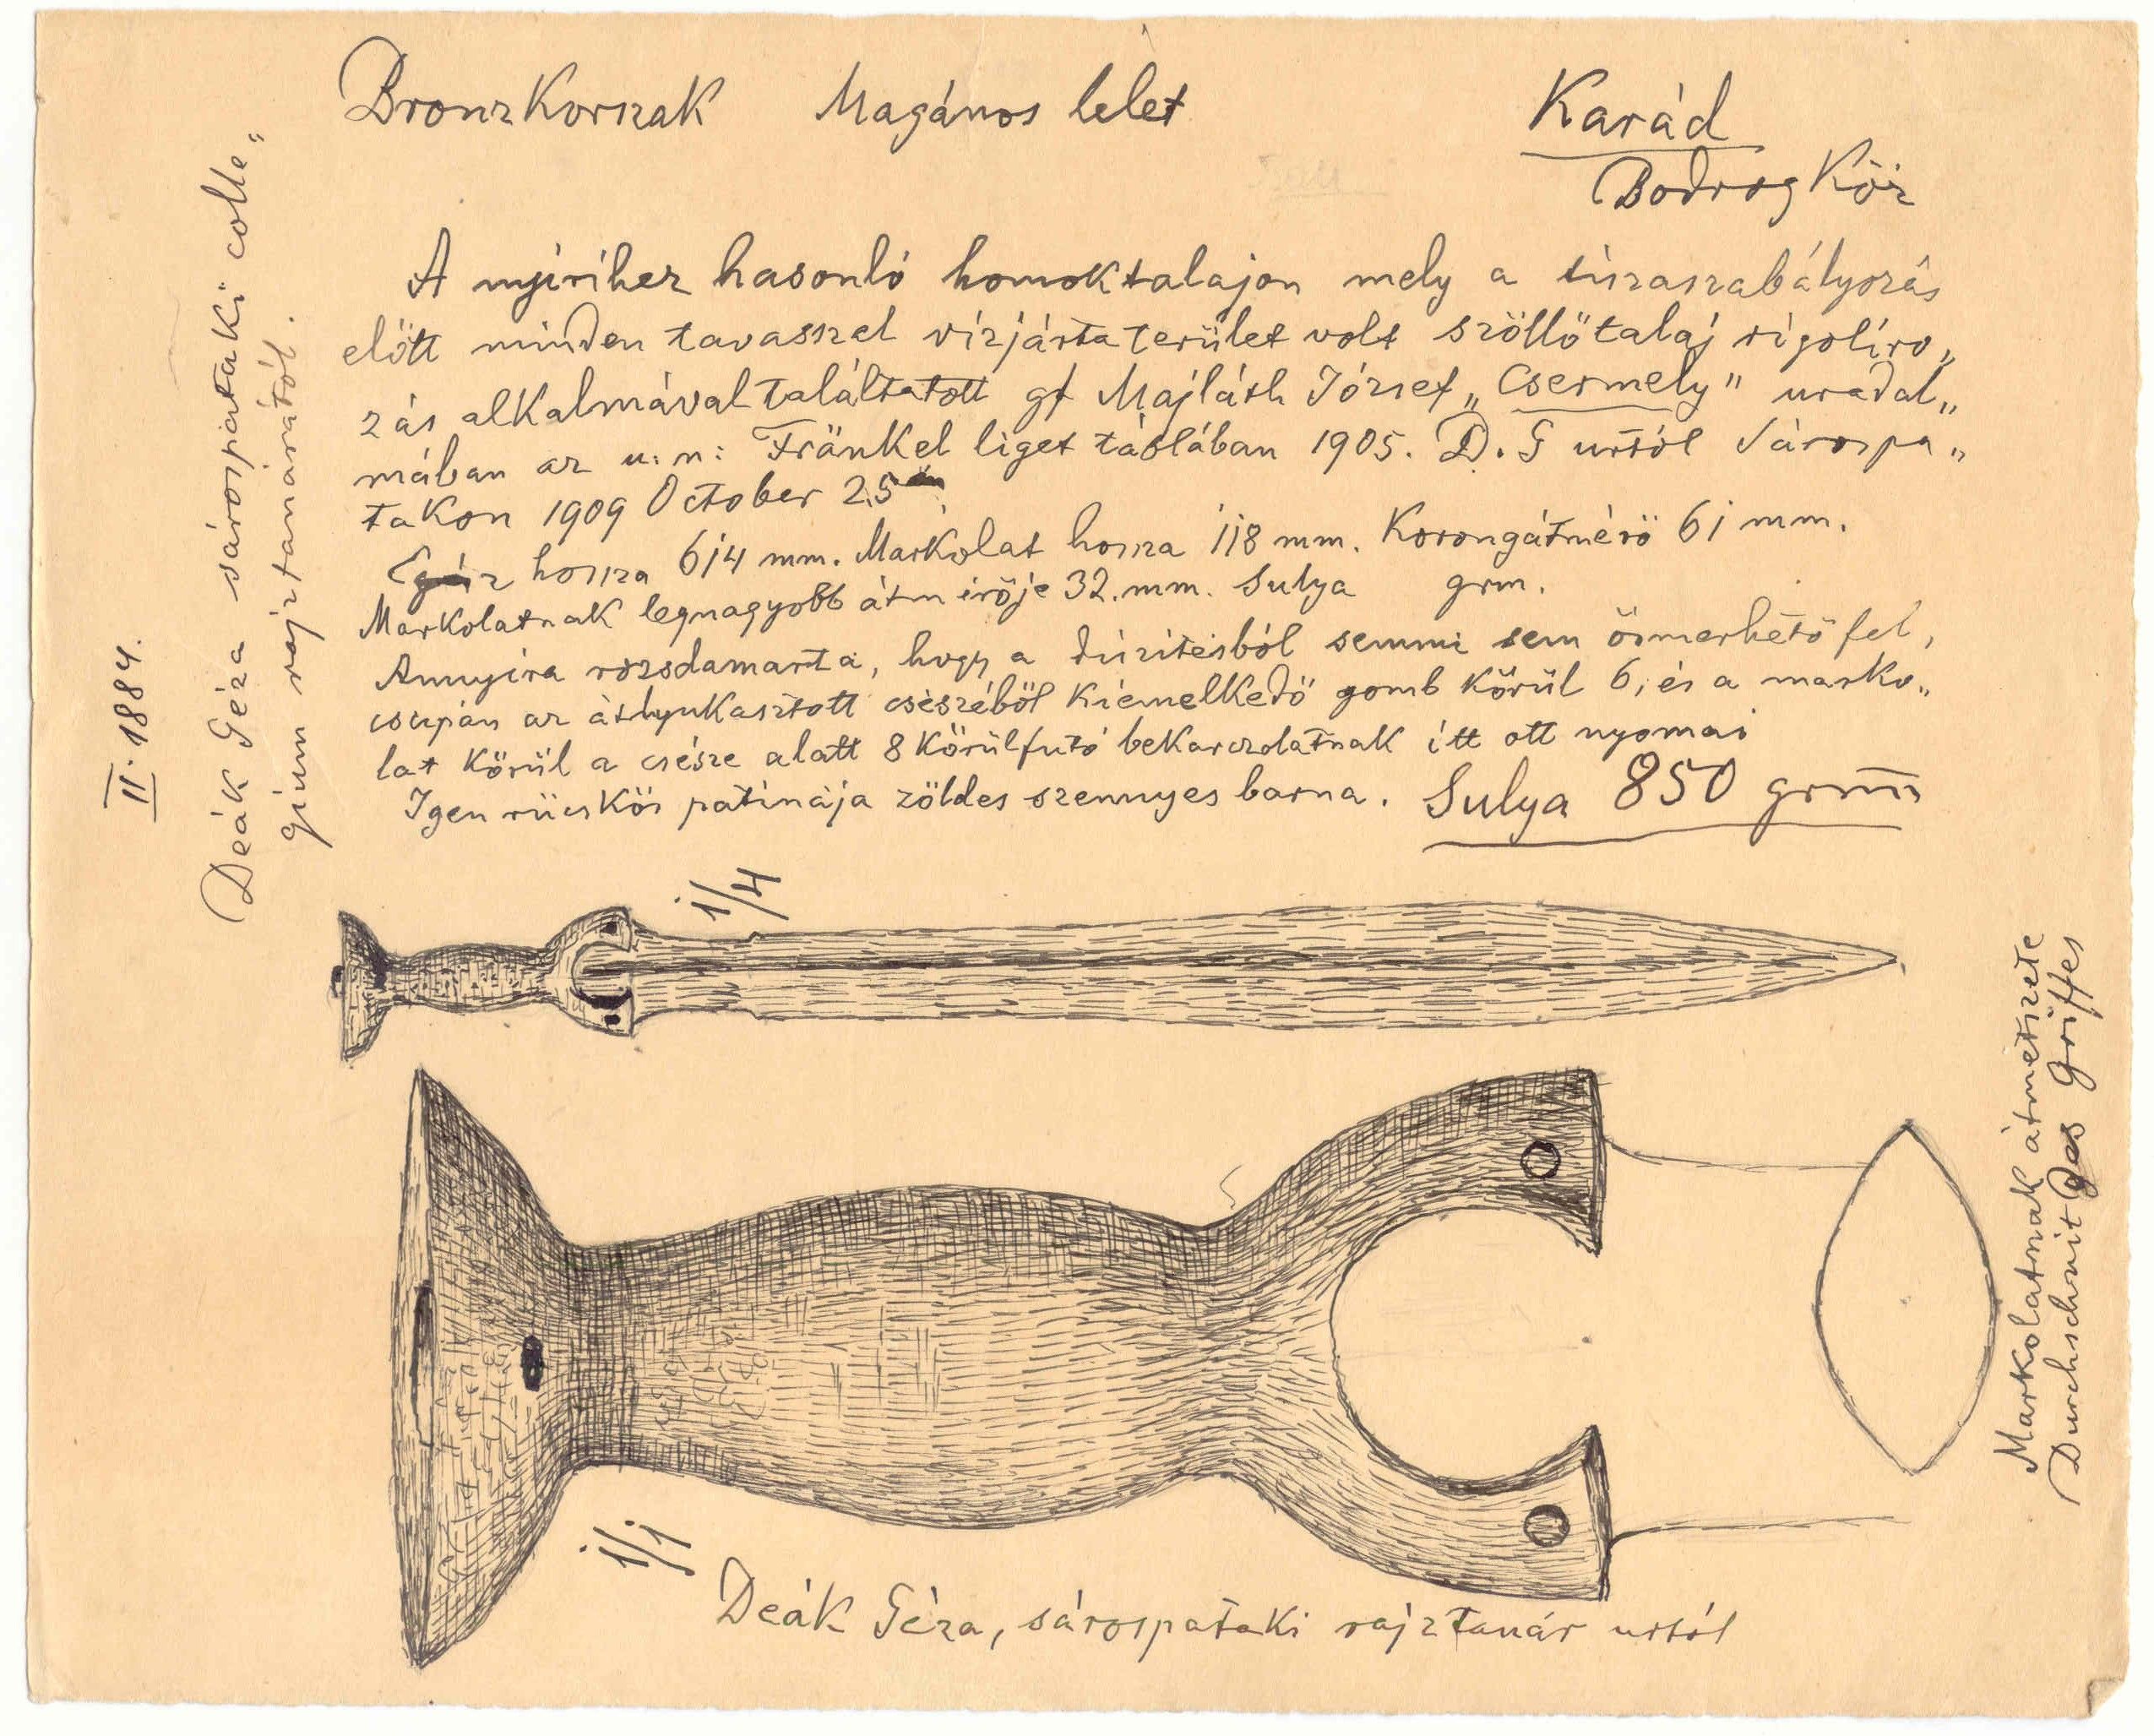 Bronzkorszak Magános lelet
Karád
Bodrogköz
A nyírihez hasonló homoktalajon mely a tiszaszabályozás
előtt minden tavasszel vízjárta terület volt szöllőtalaj rigolíro„
zás alkalmával találtatott gf Majláth József „Csermely" uradal„
mában az u: n: Fränkel liget táblában 1905. D. G úrtól Sárospa„
takon 1909 October 25én
Egész hossza 614 mm. Markolat hossza 118 mm. Korongátmérö 61 mm.
Markolatnak legnagyobb átmérője 32. mm. Sulya grm.
Annyira rozsdamarta, hogy a díszítésből semmi sem ösmerhető fel,
csupán az átlyukasztott csészéből kiemelkedö gomb körül 6, és a marko„
lat körül a csésze alatt 8 körülfutó bekarczolatnak itt ott nyomai
Igen rücskös patinája zöldes szennyes barna. Sulya 850 grmm
Deák Géza sárospataki colle„
gium rajztanárától.
II. 1884.
1/4
Markolatnak átmetszete
Durchschnit des Griffes
1/1
Deák Géza, sárospataki rajztanár úrtól